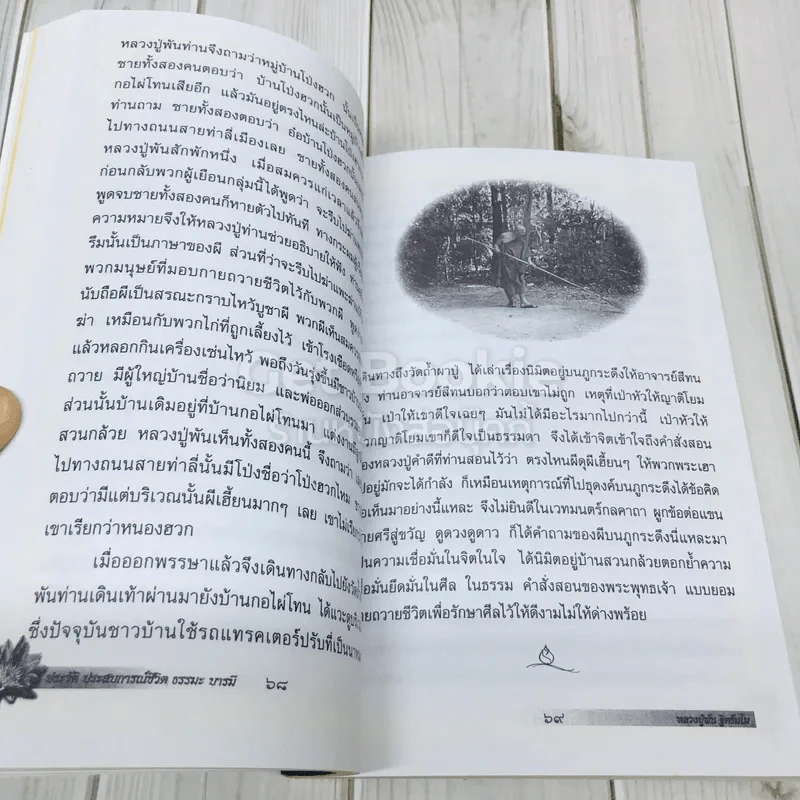 หลวงปู่พันท่านจึงถามว่าหมู่บ้านโป่งฮวก
ชายทั้งสองคนตอบว่า บ้านโป่งฮวกนั้นเป็น
กอไผ่โทนเสียอีก แล้วมันอยู่ตรงไหนล่ะบ้านโป่ง
ท่านถาม ชายทั้งสองตอบว่า อ๋อบ้านโป่งฮวกนั้น
ไปทางถนนสายท่าลี่เมืองเลย ชายทั้งสองคน
หลวงปู่พันสักพักหนึ่ง เมื่อสมควรแก่เวลา
ก่อนกลับพวกผู้เยือนกลุ่มนี้ได้พูดว่า จะรีบไป
พูดจบชายทั้งสองคนก็หายตัวไปทันที
ความหมายจึงให้หลวงปู่ท่านช่วยอธิบายให้ฟัง
รึมนั้นเป็นภาษาของผี ส่วนที่ว่าจะรีบไปฆ่าแพะ
พวกมนุษย์ที่มอบกายถวายชีวิตไว้กับพวกผี
นับถือผีเป็นสรณะกราบไหว้บูชาผี พวกผีเห็นสมควร
ฆ่า เหมือนกับพวกไก่ที่ถูกเลี้ยงไว้ เข้าโรงเชือด
แล้วหลอกกินเครื่องเซ่นไหว้ พอถึงวันรุ่งขึ้นมีชาวบ้าน
ถวาย มีผู้ใหญ่บ้านชื่อว่านิยม และพ่อออก
ส่วนนั้นบ้านเดิมอยู่ที่บ้านกอไผ่โทนมา แต่งงาน
สวนกล้วย หลวงปู่พันเห็นทั้งสองคนนี้ จึงถามว่า
ไปทางถนนสายท่าลี่นั้นมีโป่งชื่อว่าโป่งฮวกไหม
ตอบว่ามีแต่บริเวณนั้นผีเฮี้ยนมากๆ เลย เขาไม่เรียกว่า
เขาเรียกว่าหนองฮวก
เมื่อออกพรรษาแล้วจึงเดินทางกลับไปยัง
พันท่านเดินเท้าผ่านมายังบ้านกอไผ่โทน ได้แวะดู
ซึ่งปัจจุบันชาวบ้านใช้รถแทรคเตอร์ปรับที่เป็น
ประวัติ ประสบการณ์ชีวิต ธรรมะ บารมี ๖๘
เดินทางถึงวัดถ้ำผาปู่ ได้เล่าเรื่องนิมิตอยู่บนภูกระดึงให้อาจารย์สีทน
ท่านอาจารย์สีทนบอกว่าตอบเขาไม่ถูก เหตุที่เป่าหัวให้ญาติโยม
เป่าให้เขาดีใจเฉยๆ มันไม่ได้มีอะไรมากไปกว่านี้ เป่าหัวให้
พวกญาติโยมเขาก็ดีใจเป็นธรรมดา จึงได้เข้าจิตเข้าใจถึงคำสั่งสอน
ของหลวงปู่คำดีที่ท่านสอนไว้ว่า ตรงไหนผีดุผีเฮี้ยนๆ ให้พวกพระเฮา
ไปอยู่มักจะได้กำลัง ก็เหมือนเหตุการณ์ที่ไปธุดงค์บนภูกระดึงได้ข้อคิด
ข้อเห็นมาอย่างนี้แหละ จึงไม่ยินดีในเวทมนตร์กลคาถา ผูกข้อต่อแขน
บายศรีสู่ขวัญ ดูดวงดูดาว ก็ได้คำถามของผีบนภูกระดึงนี่แหละมา
เป็นความเชื่อมั่นในจิตในใจ ได้นิมิตอยู่บ้านสวนกล้วยตอกย้ำความ
เชื่อมั่นยึดมั่นในศีล ในธรรม คำสั่งสอนของพระพุทธเจ้า แบบยอม
ตายถวายชีวิตเพื่อรักษาศีลไว้ให้ดีงามไม่ให้ด่างพร้อย
๖๙ หลวงปู่พัน ฐิตธัมโม
Get Bookie